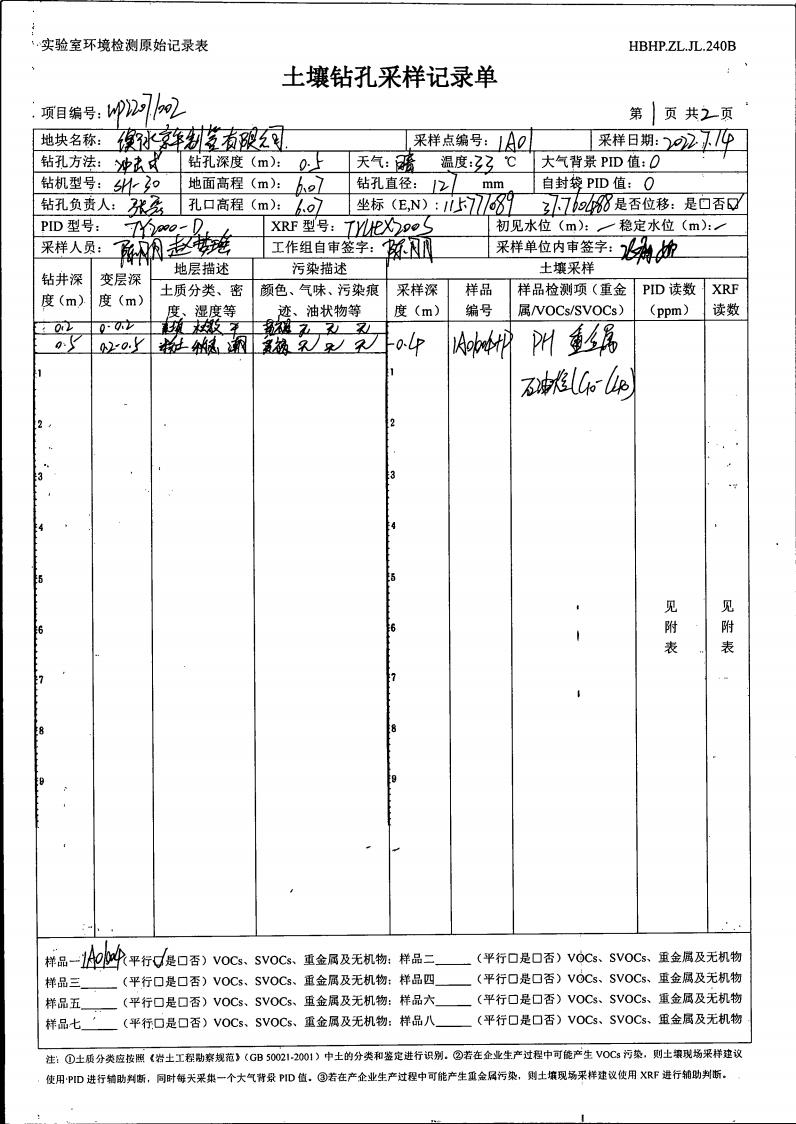 实验室环境检测原始记录表 HBHP.ZL.JL.240B
土壤钻孔采样记录单
项目编号: WP2207002 第 1 页 共 2 页
地块名称: 有限公司 采样点编号: 1A01 采样日期: 2022.7.14
钻孔方法: 冲击式 钻孔深度（m）: 0.5 天气: 晴 温度: 33 ℃ 大气背景 PID 值: 0
钻机型号: SH-30 地面高程（m）: 6.07 钻孔直径: 127 mm 自封袋 PID 值: 0
钻孔负责人: 孔口高程（m）: 6.07 坐标（E,N）: 115.777689 37.760488 是否位移: 是□否☑
PID 型号: TY2000-D XRF 型号: 初见水位（m）: ／ 稳定水位（m）: ／
采样人员: 工作组自审签字: 采样单位内审签字:
钻井深度（m） 变层深度（m） 地层描述 污染描述 土壤采样
土质分类、密度、湿度等 颜色、气味、污染痕迹、油状物等 采样深度（m） 样品编号 样品检测项（重金属/VOCs/SVOCs） PID 读数（ppm） XRF 读数
0.2 0-0.2 无 无
0.5 0.2-0.5 潮 无 无 -0.4 1A01004+P PH 重金属
石油烃(C10-C40)
1 1
2 2
3 3
4 4
5 5
6 6
见附表 见附表
7 7
8 8
9 9
样品一 1A01004 （平行☑是□否）VOCs、SVOCs、重金属及无机物; 样品二____（平行□是□否）VOCs、SVOCs、重金属及无机物
样品三____（平行□是□否）VOCs、SVOCs、重金属及无机物; 样品四____（平行□是□否）VOCs、SVOCs、重金属及无机物
样品五____（平行□是□否）VOCs、SVOCs、重金属及无机物; 样品六____（平行□是□否）VOCs、SVOCs、重金属及无机物
样品七____（平行□是□否）VOCs、SVOCs、重金属及无机物; 样品八____（平行□是□否）VOCs、SVOCs、重金属及无机物
注: ①土质分类应按照《岩土工程勘察规范》（GB 50021-2001）中土的分类和鉴定进行识别。②若在企业生产过程中可能产生 VOCs 污染，则土壤现场采样建议
使用 PID 进行辅助判断，同时每天采集一个大气背景 PID 值。③若在产企业生产过程中可能产生重金属污染，则土壤现场采样建议使用 XRF 进行辅助判断。